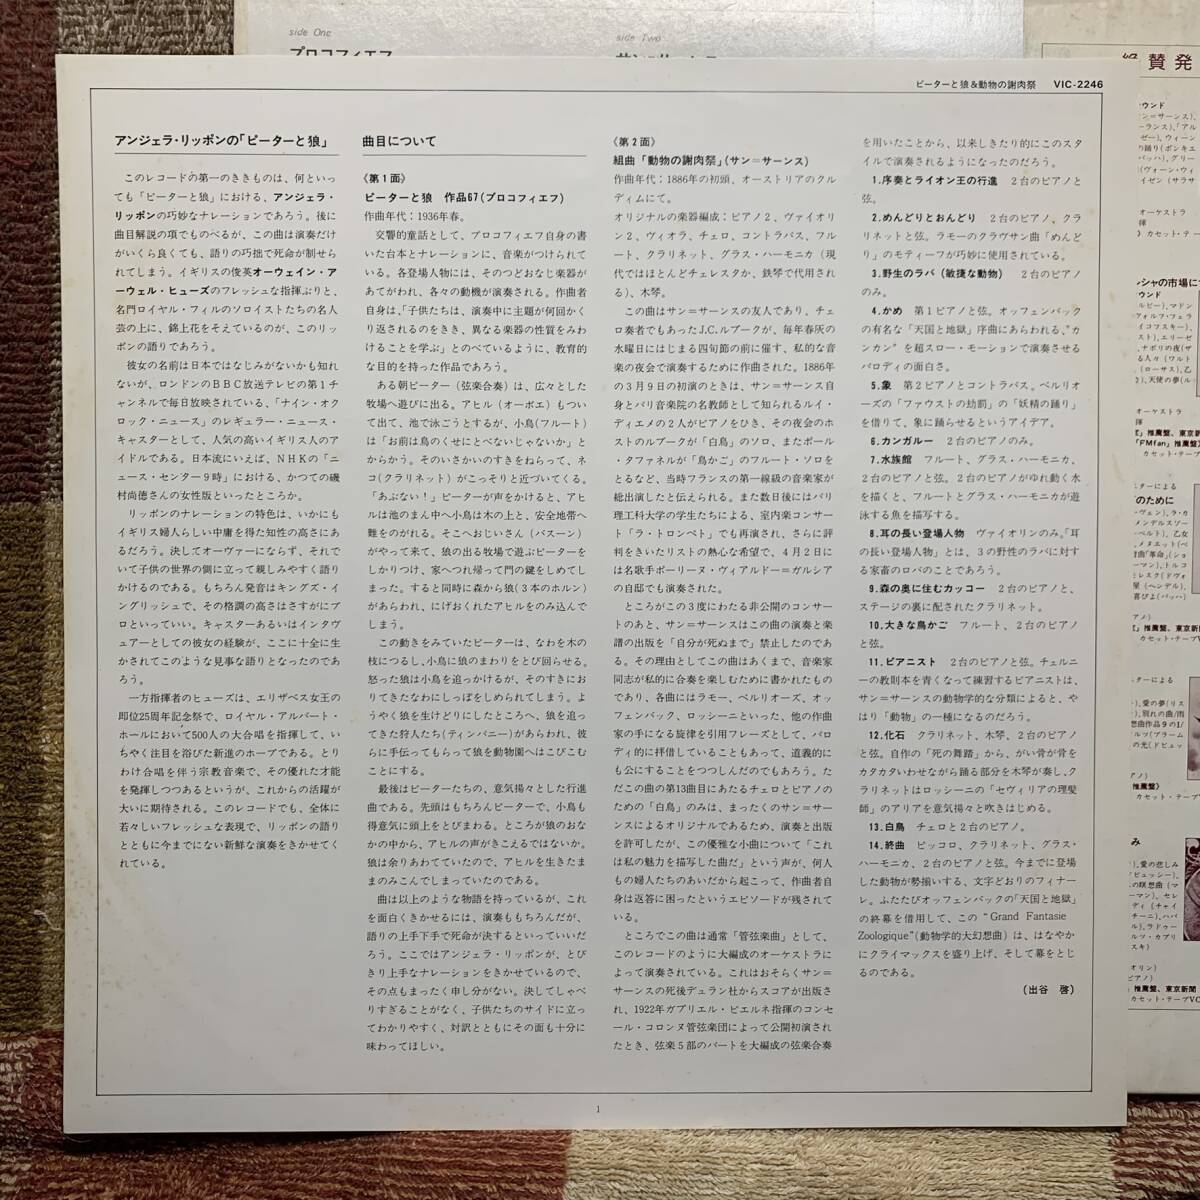 side One
プロコフィエフ
side Two
ピーターと狼＆動物の謝肉祭 VIC-2246
アンジェラ・リッポンの「ピーターと狼」
このレコードの第一のききものは、何といっ
ても「ピーターと狼」における、アンジェラ・
リッポンの巧妙なナレーションであろう。後に
曲目解説の項でものべるが、この曲は演奏だけ
がいくら良くても、語りの巧拙で死命が制せら
れてしまう。イギリスの俊英オーウェイン・ア
ーウェル・ヒューズのフレッシュな指揮ぶりと、
名門ロイヤル・フィルのソロイストたちの名人
芸の上に、錦上花をそえているのが、このリッ
ポンの語りであろう。
彼女の名前は日本ではなじみがないかも知れ
ないが、ロンドンのＢＢＣ放送テレビの第１チ
ャンネルで毎日放映されている、「ナイン・オク
ロック・ニュース」のレギュラー・ニュース・
キャスターとして、人気の高いイギリス人のア
イドルである。日本流にいえば、ＮＨＫの「ニ
ュース・センター９時」における、かつての磯
村尚徳さんの女性版といったところか。
リッポンのナレーションの特色は、いかにも
イギリス婦人らしい中庸を得た知性の高さにあ
るだろう。決してオーヴァーにならず、それで
いて子供の世界の側に立って親しみやすく語り
かけるのである。もちろん発音はキングズ・イ
ングリッシュで、その格調の高さはさすがにプ
ロといっていい。キャスターあるいはインタヴ
ュアーとしての彼女の経験が、ここに十全に生
かされてこのような見事な語りとなったのであ
ろう。
一方指揮者のヒューズは、エリザベス女王の
即位25周年記念祭で、ロイヤル・アルバート・
ホールにおいて500人の大合唱を指揮して、い
ちやく注目を浴びた新進のホープである。とり
わけ合唱を伴う宗教音楽で、その優れた才能
を発揮しつつあるというが、これからの活躍が
大いに期待される。このレコードでも、全体に
若々しいフレッシュな表現で、リッポンの語り
とともに今までにない新鮮な演奏をきかせてく
れている。
曲目について
《第１面》
ピーターと狼 作品67(プロコフィエフ)
作曲年代：1936年春。
交響的童話として、プロコフィエフ自身の書
いた台本とナレーションに、音楽がつけられて
いる。各登場人物には、そのつどおなじ楽器が
あてがわれ、各々の動機が演奏される。作曲者
自身は、「子供たちは、演奏中に主題が何回かく
り返されるのをきき、異なる楽器の性質をみわ
けることを学ぶ」とのべているように、教育的
な目的を持った作品であろう。
ある朝ピーター（弦楽合奏）は、広々とした
牧場へ遊びに出る。アヒル（オーボエ）もつい
て出て、池で泳ごうとするが、小鳥(フルート)
は「お前は鳥のくせにとべないじゃないか」と
からかう。そのいさかいのすきをねらって、ネ
コ(クラリネット)がこっそりと近づいてくる。
「あぶない！」ピーターが声をかけると、アヒ
ルは池のまん中へ小鳥は木の上と、安全地帯へ
難をのがれる。そこへおじいさん（バスーン）
がやって来て、狼の出る牧場で遊ぶピーターを
しかりつけ、家へつれ帰って門の鍵をしめてし
まった。すると同時に森から狼(３本のホルン)
があらわれ、にげおくれたアヒルをのみ込んで
しまう。
この動きをみていたピーターは、なわを木の
枝につるし、小鳥に狼のまわりをとび回らせる。
怒った狼は小鳥を追っかけるが、そのすきにお
りてきたなわにしっぽをしめられてしまう。よ
うやく狼を生けどりにしたところへ、狼を追っ
てきた狩人たち(ティンパニー)があらわれ、彼
らに手伝ってもらって狼を動物園へはこびこむ
ことにする。
最後はピーターたちの、意気揚々とした行進
曲である。先頭はもちろんピーターで、小鳥も
得意気に頭上をとびまわる。ところが狼のおな
かの中から、アヒルの声がきこえるではないか。
狼は余りあわてていたので、アヒルを生きたま
まのみこんでしまっていたのである。
曲は以上のような物語を持っているが、これ
を面白くきかせるには、演奏ももちろんだが、
語りの上手下手で死命が決するといっていいだ
ろう。ここではアンジェラ・リッポンが、とび
きり上手なナレーションをきかせているので、
その点もまったく申し分がない。決してしゃべ
りすぎることがなく、子供たちのサイドに立っ
てわかりやすく、対訳とともにその面も十分に
味わってほしい。
《第２面》
組曲「動物の謝肉祭」(サン＝サーンス)
作曲年代：1886年の初頭、オーストリアのクル
ディムにて。
オリジナルの楽器編成：ピアノ２、ヴァイオリ
ン２、ヴィオラ、チェロ、コントラバス、フル
ート、クラリネット、グラス・ハーモニカ（現
代ではほとんどチェレスタか、鉄琴で代用され
る）、木琴。
この曲はサン＝サーンスの友人であり、チェ
ロ奏者でもあったJ.C.ルブークが、毎年春灰の
水曜日にはじまる四旬節の前に催す、私的な音
楽の夜会で演奏するために作曲された。1886年
の３月９日の初演のときは、サン＝サーンス自
身とパリ音楽院の名教師として知られるルイ・
ディエメの２人がピアノをひき、その夜会のホ
ストのルブークが「白鳥」のソロ、またポール
・タファネルが「鳥かご」のフルート・ソロを
とるなど、当時フランスの第一線級の音楽家が
総出演したと伝えられる。また数日後にはパリ
理工科大学の学生たちによる、室内楽コンサー
ト「ラ・トロンペト」でも再演され、さらに評
判をきいたリストの熱心な希望で、４月２日に
は名歌手ポーリーヌ・ヴィアルドー＝ガルシア
の自邸でも演奏された。
ところがこの３度にわたる非公開のコンサー
トのあと、サン＝サーンスはこの曲の演奏と楽
譜の出版を「自分が死ぬまで」禁止したのであ
る。その理由としてこの曲はあくまで、音楽家
同志が私的に合奏を楽しむために書かれたもの
であり、各曲にはラモー、ベルリオーズ、オッ
フェンバック、ロッシーニといった、他の作曲
家の手になる旋律を引用フレーズとして、パロ
ディ的に拝借していることもあって、道義的に
も公にすることをつつしんだのでもあろう。た
だこの曲の第13曲目にあたるチェロとピアノの
ための「白鳥」のみは、まったくのサン＝サー
ンスによるオリジナルであるため、演奏と出版
を許可したが、この優雅な小曲について「これ
は私の魅力を描写した曲だ」という声が、何人
もの婦人たちのあいだから起こって、作曲者自
身は返答に困ったというエピソードが残されて
いる。
ところでこの曲は通常「管弦楽曲」として、
このレコードのように大編成のオーケストラに
よって演奏されている。これはおそらくサン＝
サーンスの死後デュラン社からスコアが出版さ
れ、1922年ガブリエル・ピエルネ指揮のコンセ
ール・コロンヌ管弦楽団によって公開初演され
たとき、弦楽５部のパートを大編成の弦楽合奏
を用いたことから、以来しきたり的にこのスタ
イルで演奏されるようになったのだろう。
1.序奏とライオン王の行進 ２台のピアノと
弦。
2.めんどりとおんどり ２台のピアノ、クラ
リネットと弦。ラモーのクラヴサン曲「めんど
り」のモティーフが巧妙に使用されている。
3.野生のラバ（敏捷な動物） ２台のピアノ
のみ。
4.かめ 第１ピアノと弦。オッフェンバック
の有名な「天国と地獄」序曲にあらわれる、“カ
ンカン”を超スロー・モーションで演奏させる
パロディの面白さ。
5.象 第２ピアノとコントラバス。ベルリオ
ーズの「ファウストの劫罰」の「妖精の踊り」
を借りて、象に踊らせるというアイデア。
6.カンガルー ２台のピアノのみ。
7.水族館 フルート、グラス・ハーモニカ、
２台のピアノと弦。２台のピアノがゆれ動く水
を描くと、フルートとグラス・ハーモニカが遊
泳する魚を描写する。
8.耳の長い登場人物 ヴァイオリンのみ。「耳
の長い登場人物」とは、３の野性のラバに対す
る家畜のロバのことであろう。
9.森の奥に住むカッコー ２台のピアノと、
ステージの裏に配されたクラリネット。
10.大きな鳥かご フルート、２台のピアノ
と弦。
11.ピアニスト ２台のピアノと弦。チェルニ
ーの教則本を青くなって練習するピアニストは、
サン＝サーンスの動物学的な分類によると、や
はり「動物」の一種になるのだろう。
12.化石 クラリネット、木琴、２台のピアノ
と弦。自作の「死の舞踏」から、がい骨が骨を
カタカタいわせながら踊る部分を木琴が奏し、ク
ラリネットはロッシーニの「セヴィリアの理髪
師」のアリアを意気揚々と吹きはじめる。
13.白鳥 チェロと２台のピアノ。
14.終曲 ピッコロ、クラリネット、グラス・
ハーモニカ、２台のピアノと弦。今までに登場
した動物が勢揃いする、文字どおりのフィナー
レ。ふたたびオッフェンバックの「天国と地獄」
の終幕を借用して、この “Grand Fantasie
Zoologique”(動物学的大幻想曲）は、はなやか
にクライマックスを盛り上げ、そして幕をとじ
るのである。
（出谷 啓）
1